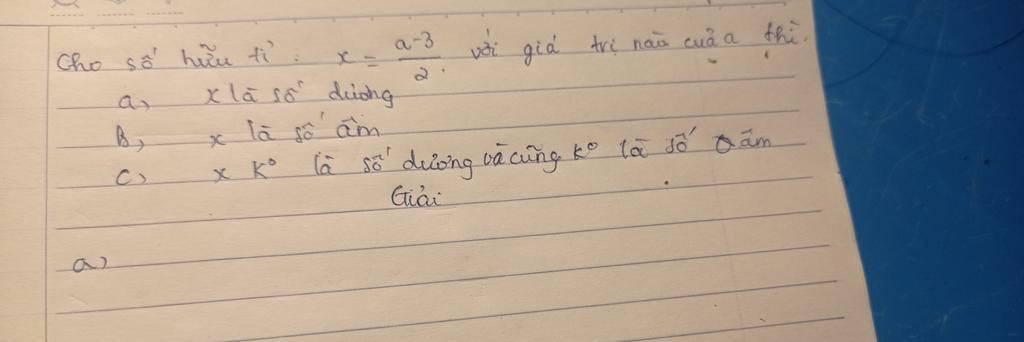 Cho số hữu tỉ : x = \frac{a-3}{2} . với giá trị nào của a thì.
a, x là số dương
B, x là số âm
c, x K° là số dương và cũng K° là số âm
Giải
a,